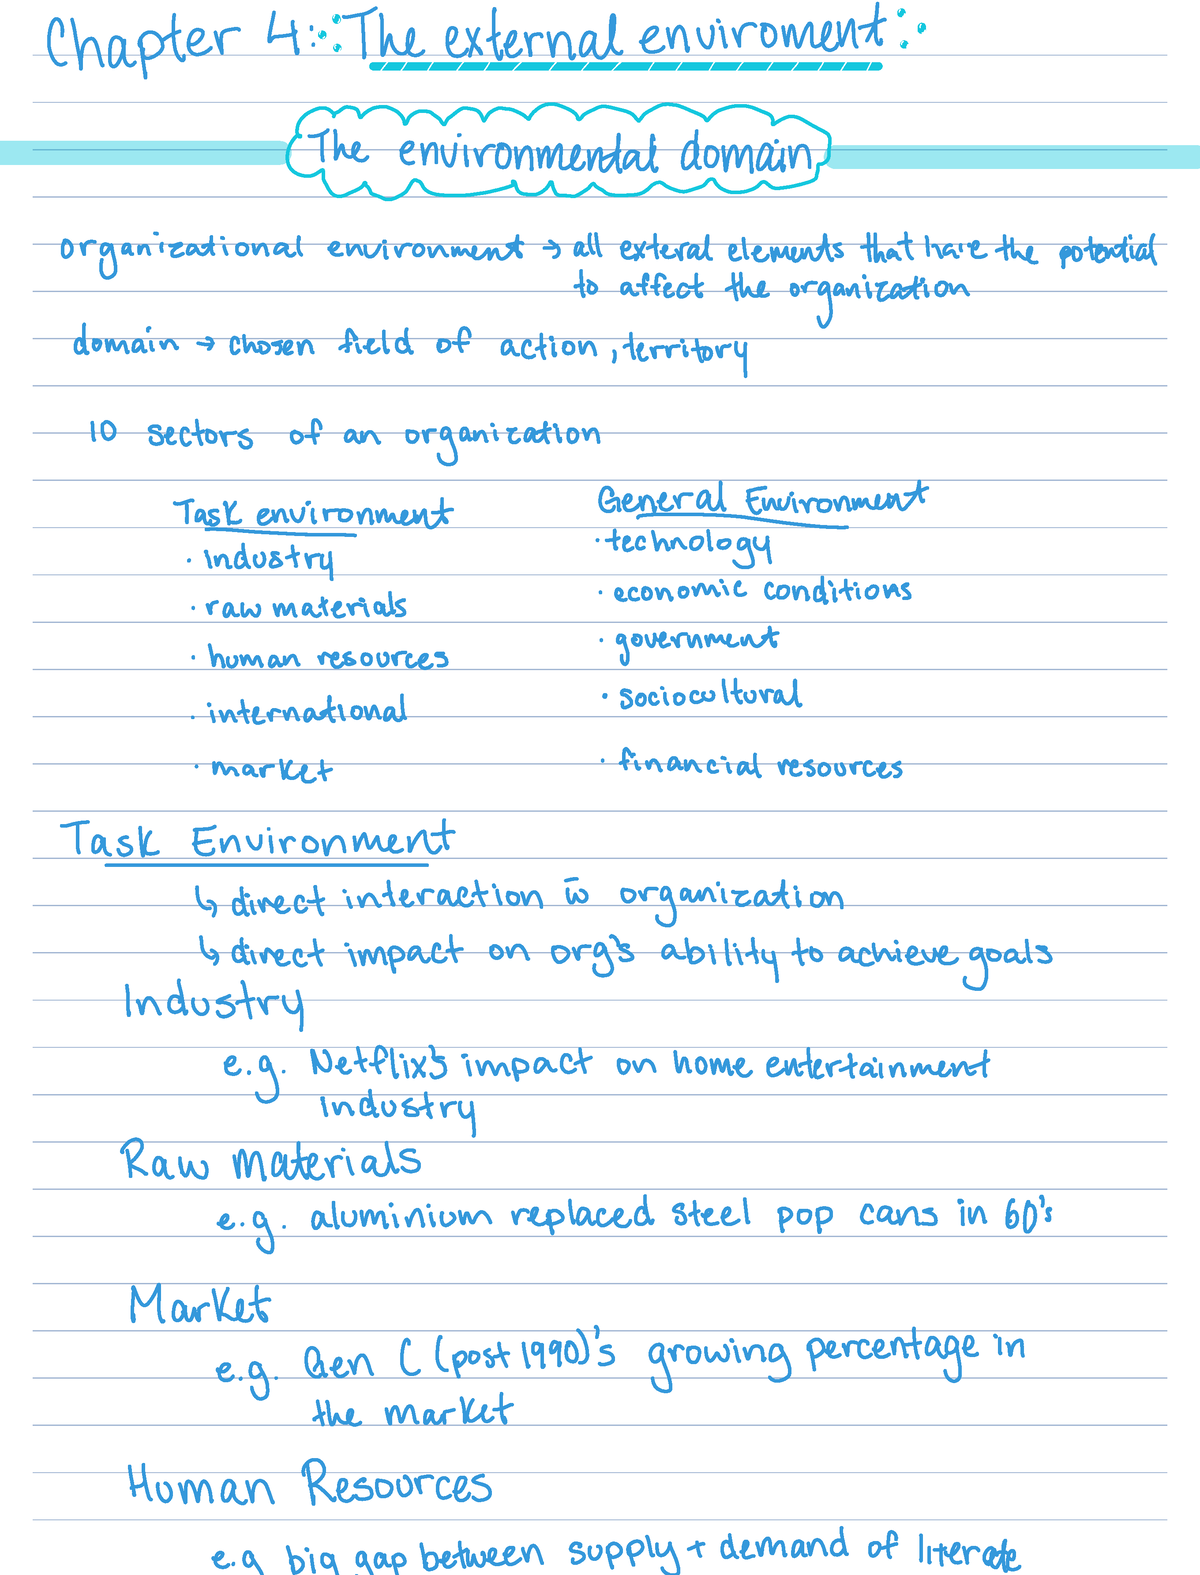 Chapter 4: The external enviroment
The environmental domain
organizational environment → all exteral elements that have the potential
to affect the organization
domain → chosen field of action, territory
10 sectors of an organization
Task environment
• industry
• raw materials
• human resources
• international
• market
General Environment
• technology
• economic conditions
• government
• sociocultural
• financial resources
Task Environment
↳ direct interaction w̄ organization
↳ direct impact on org's ability to achieve goals
Industry
e.g. Netflix's impact on home entertainment
industry
Raw materials
e.g. aluminium replaced steel pop cans in 60's
Market
e.g. Gen C (post 1990)'s growing percentage in
the market
Human Resources
e.g big gap between supply + demand of literate